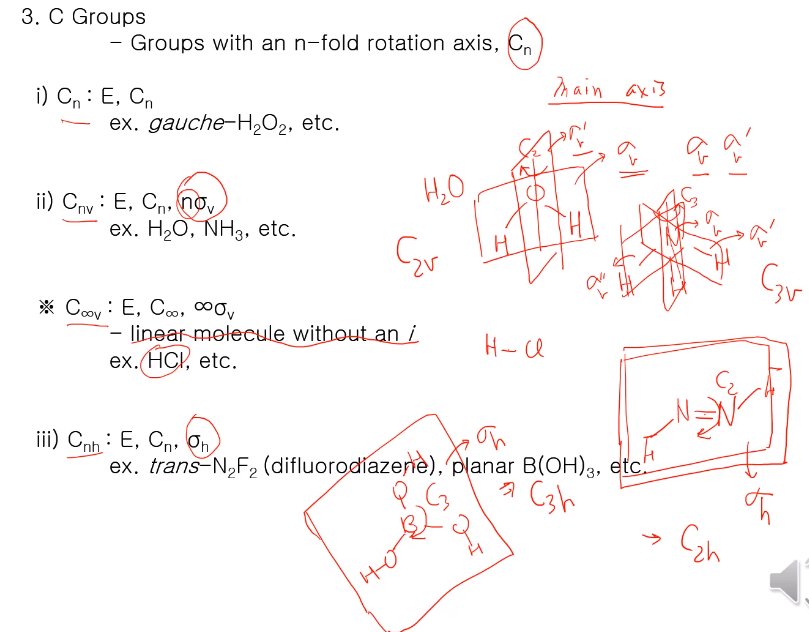 3. C Groups
- Groups with an n-fold rotation axis, Cₙ
i) Cₙ : E, Cₙ
ex. gauche-H₂O₂, etc.
ii) Cₙᵥ : E, Cₙ, nσᵥ
ex. H₂O, NH₃, etc.
※ C∞ᵥ : E, C∞, ∞σᵥ
- linear molecule without an i
ex. HCl, etc.
iii) Cₙₕ : E, Cₙ, σₕ
ex. trans-N₂F₂ (difluorodiazene), planar B(OH)₃, etc.
main axis
σᵥ' σᵥ σᵥ σᵥ'
H₂O
C₂
O
H H
C₂ᵥ
C₃
σᵥ
σᵥ'
N
σᵥ''
H H H
C₃ᵥ
H-Cl
C₂
F
N=N
F
σₕ
→ C₂ₕ
σₕ
H
O C₃
B O
H-O H
⇒ C₃ₕ